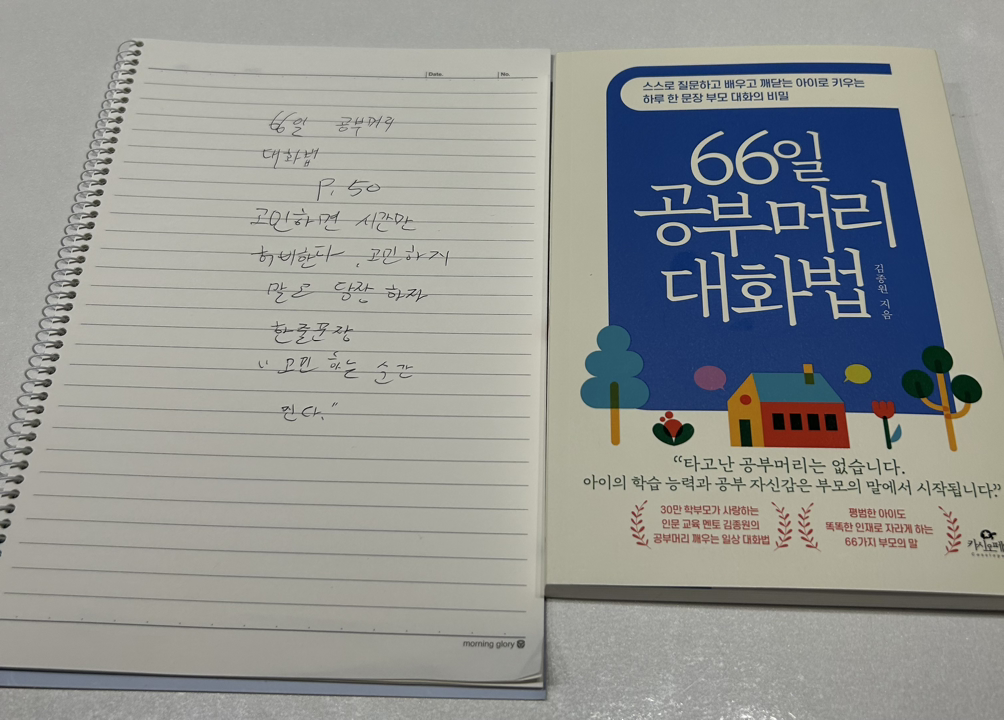 Date.
No.
66일 공부머리
대화법
P. 50
고민하면 시간만
허비한다. 고민하지
말고 당장 하자
한줄문장
"고민 하는 순간
진다."
morning glory
스스로 질문하고 배우고 깨닫는 아이로 키우는
하루 한 문장 부모 대화의 비밀
66일
공부머리
대화법
김종원 지음
“타고난 공부머리는 없습니다.
아이의 학습 능력과 공부 자신감은 부모의 말에서 시작됩니다.”
30만 학부모가 사랑하는
인문 교육 멘토 김종원의
공부머리 깨우는 일상 대화법
평범한 아이도
똑똑한 인재로 자라게 하는
66가지 부모의 말